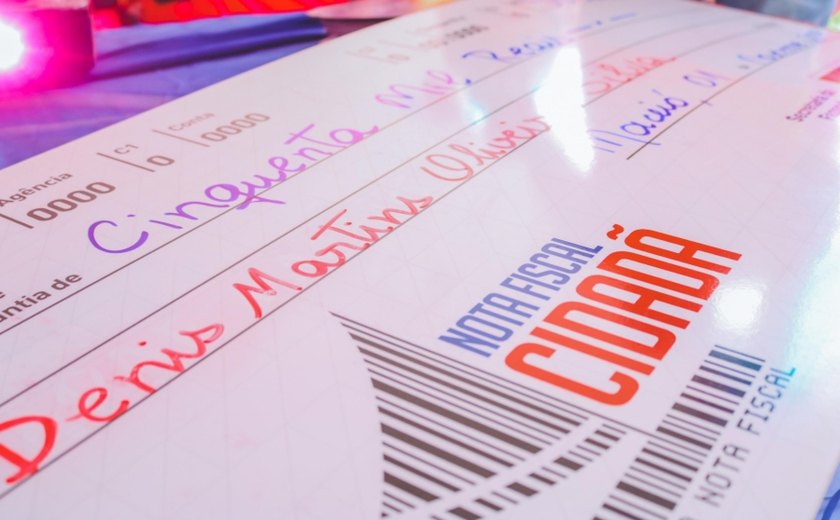 Agência C1 Conta
0000 0 0000
antia de Cinquenta Mil Reais
Denis Martins Oliveira Silva
Maceió 01
NOTA FISCAL
CIDADÃ
NOTA FISCAL